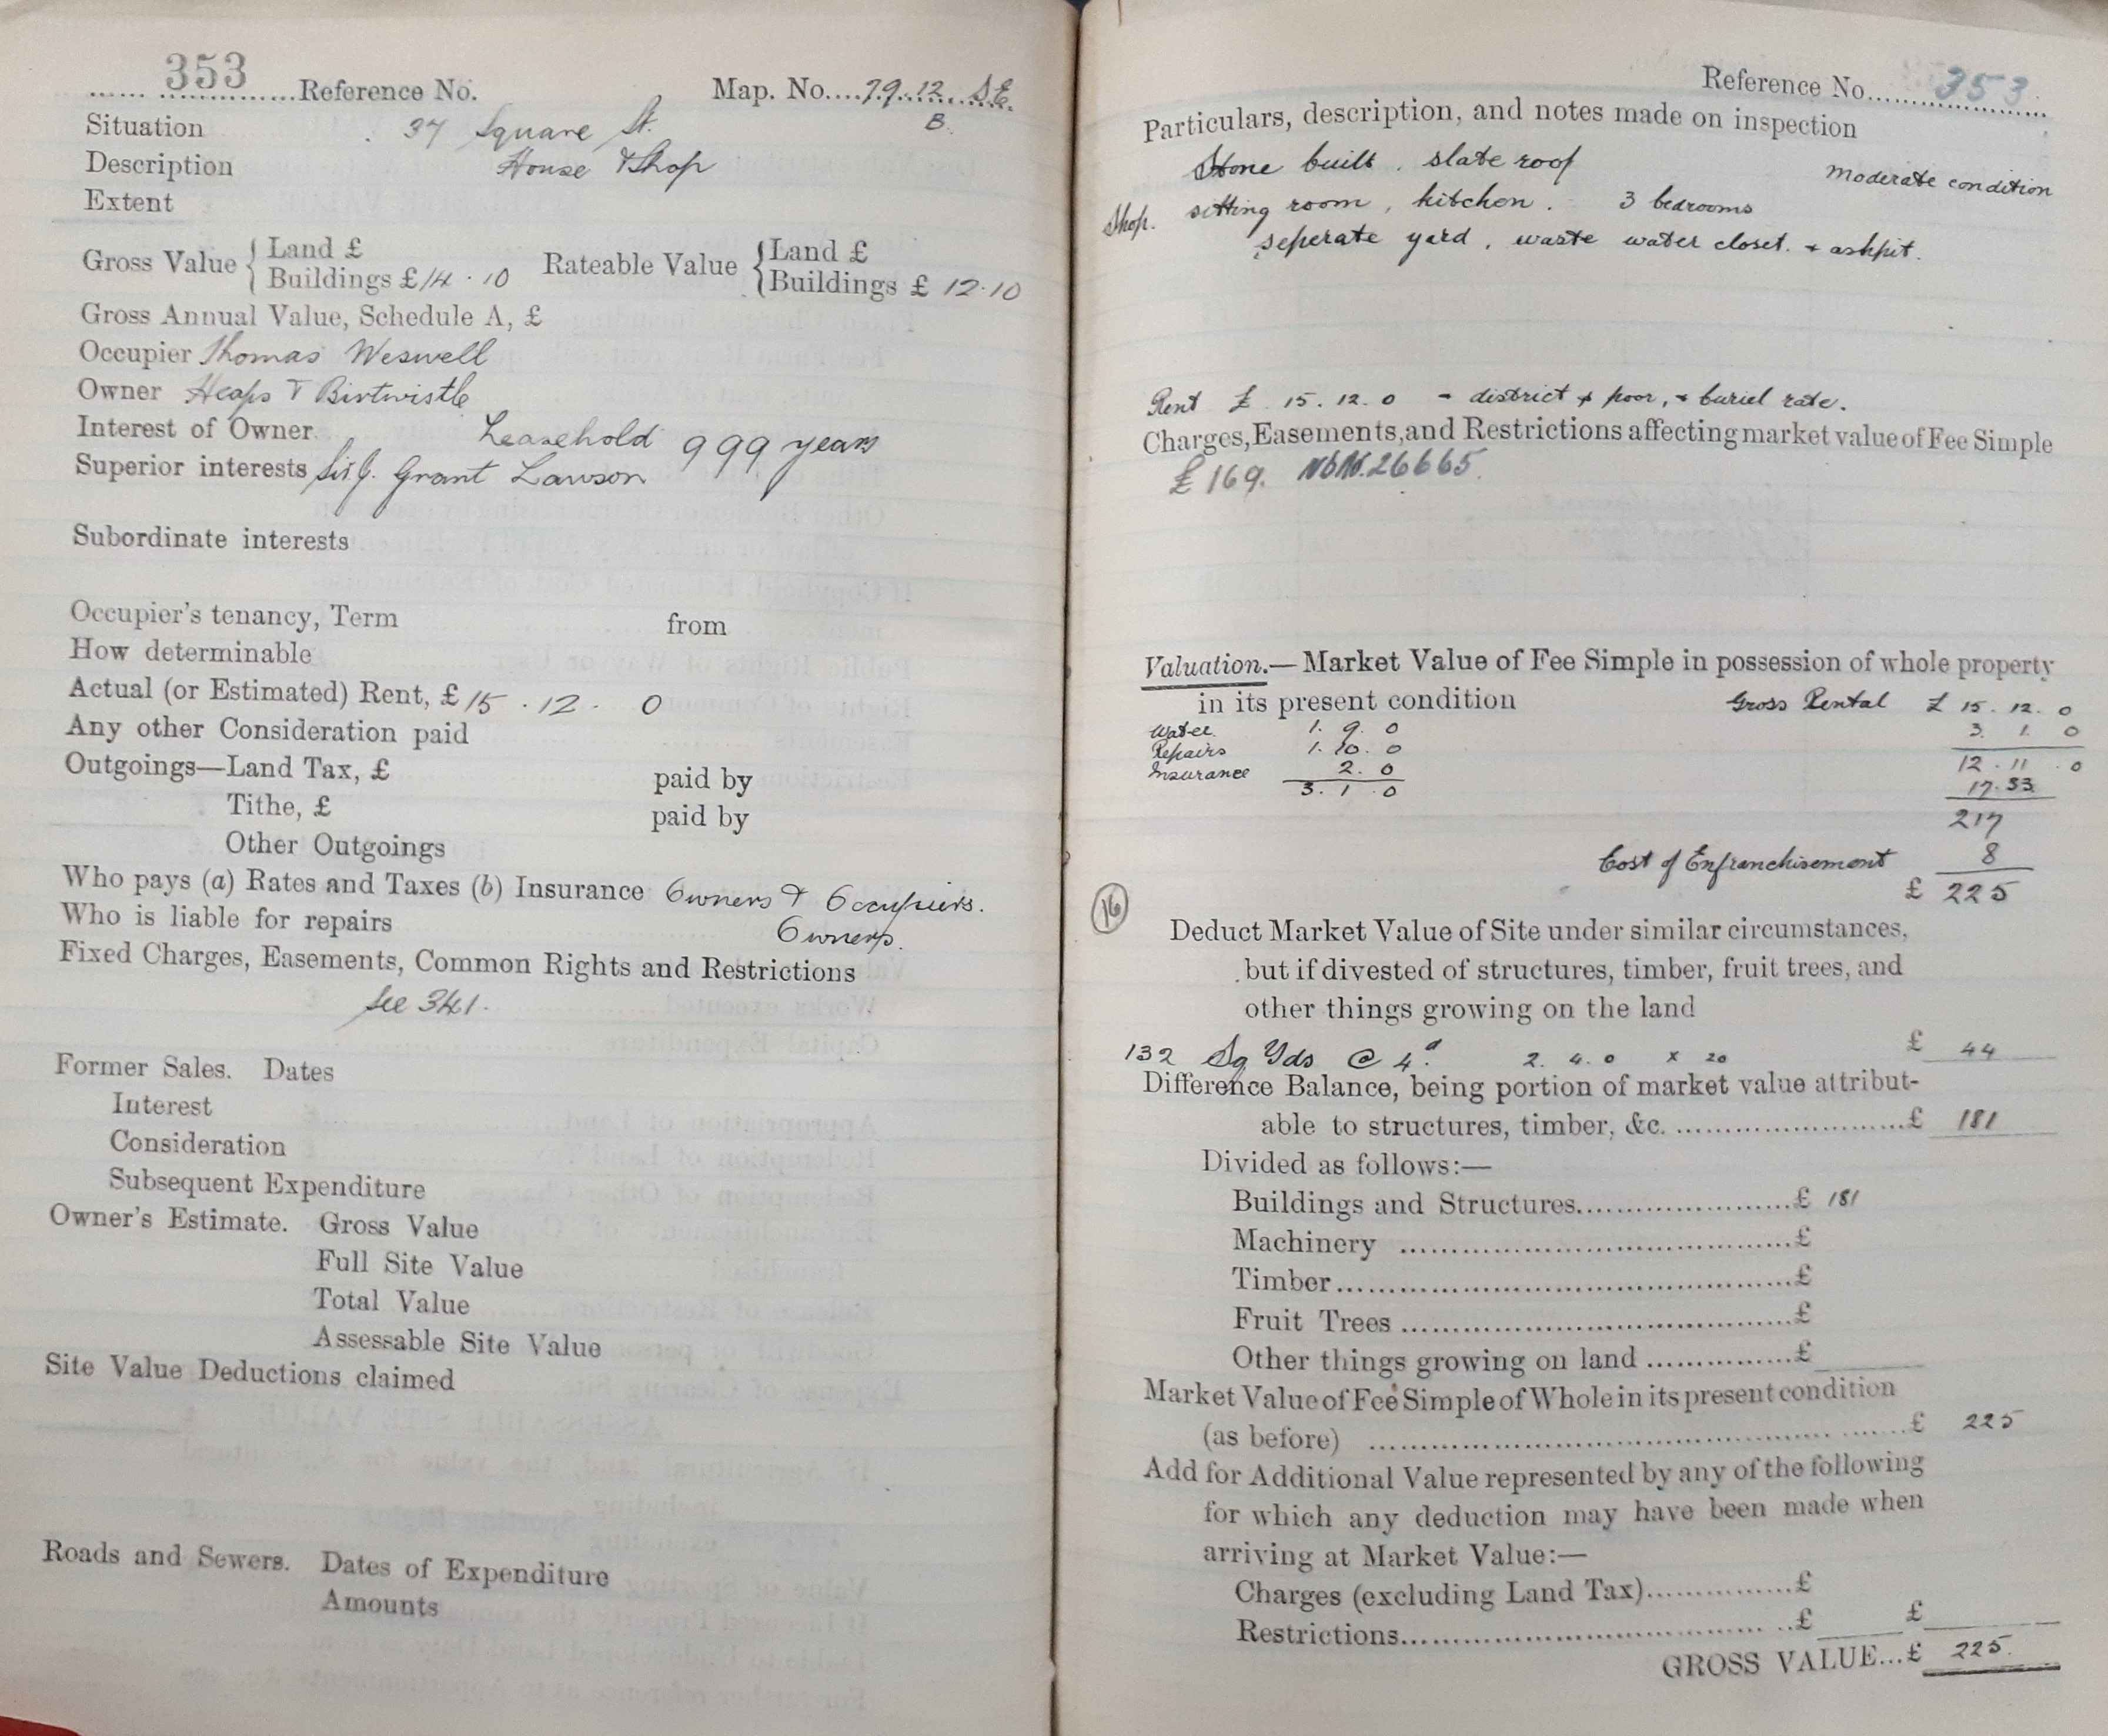 353 Reference No. Map. No. 79.12 S.E.
B.
Situation 37 Square St.
Description House & Shop
Extent
Gross Value { Land £
Buildings £ 14 . 10
Rateable Value { Land £
Buildings £ 12.10
Gross Annual Value, Schedule A, £
Occupier Thomas Weswell
Owner Heaps & Birtwistle
Interest of Owner Leasehold 999 years
Superior interests Sir J. Grant Lawson
Subordinate interests
Occupier's tenancy, Term from
How determinable
Actual (or Estimated) Rent, £ 15 . 12 . 0
Any other Consideration paid
Outgoings—Land Tax, £ paid by
Tithe, £ paid by
Other Outgoings
Who pays (a) Rates and Taxes (b) Insurance Owners & Occupiers.
Who is liable for repairs Owners.
Fixed Charges, Easements, Common Rights and Restrictions
See 341.
Former Sales. Dates
Interest
Consideration
Subsequent Expenditure
Owner's Estimate. Gross Value
Full Site Value
Total Value
Assessable Site Value
Site Value Deductions claimed
Roads and Sewers. Dates of Expenditure
Amounts
Reference No. 353
Particulars, description, and notes made on inspection
Stone built, slate roof moderate condition
Shop. sitting room, kitchen. 3 bedrooms
seperate yard, waste water closet. + ashpit.
Rent £ 15.12.0 - district + poor, + buriel rate.
Charges, Easements, and Restrictions affecting market value of Fee Simple
£169. 26665.
Valuation.—Market Value of Fee Simple in possession of whole property
in its present condition Gross Rental £ 15. 12. 0
Water. 1. 9. 0 3. 1. 0
Repairs 1. 10. 0 12. 11. 0
Insurance 2. 0 17.33
3. 1. 0
217
Cost of Enfranchisement 8
£ 225
16
Deduct Market Value of Site under similar circumstances,
but if divested of structures, timber, fruit trees, and
other things growing on the land
132 Sq Yds @ 4d. 2. 4. 0 x 20 £ 44
Difference Balance, being portion of market value attribut-
able to structures, timber, &c. £ 181
Divided as follows:—
Buildings and Structures £ 181
Machinery £
Timber £
Fruit Trees £
Other things growing on land £
Market Value of Fee Simple of Whole in its present condition
(as before) £ 225
Add for Additional Value represented by any of the following
for which any deduction may have been made when
arriving at Market Value:—
Charges (excluding Land Tax) £
Restrictions £ £
GROSS VALUE...£ 225